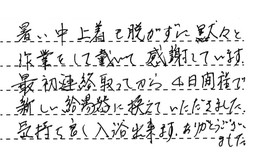 暑い中上着も脱がずに黙々と
作業をして戴いて感謝しています。
最初連絡取ってから4日間程で
新しい給湯器に換えていただきました。
気持ち良く入浴出来ます。ありがとうござい
ました。